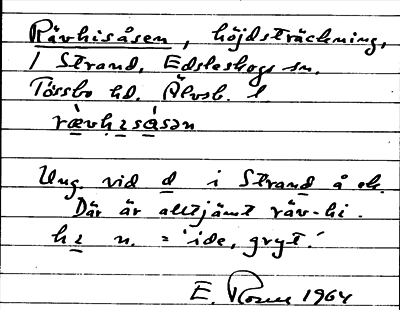 Rävhisåsen, höjdsträckning,
i Strand, Edsleskogs sn.
Tössbo hd. Älvsb. l.
rævhɪsåsən
Ung. vid d i Strand å ek.
Där är alltjämt räv-hi.
hɪ n. = 'ide, gryt.'
E. Rosell 1964